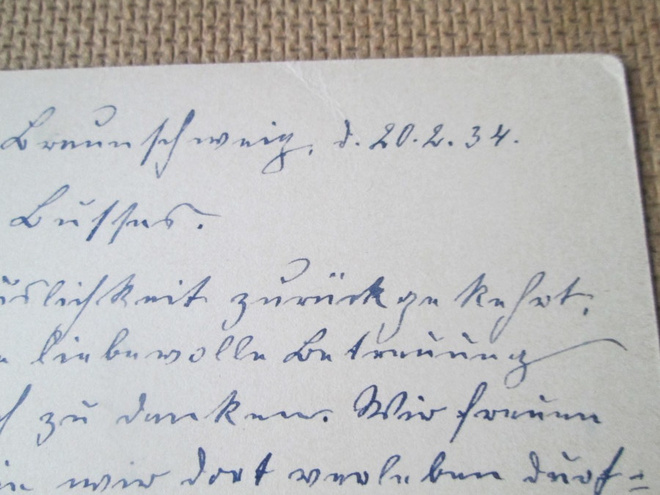 Braunschweig, d. 20.2.34.
Busses.
üslichkeit zurückgekehrt,
e liebevolle Betreuung
h zu danken. Wir freuen
in wir dort verleben durf=